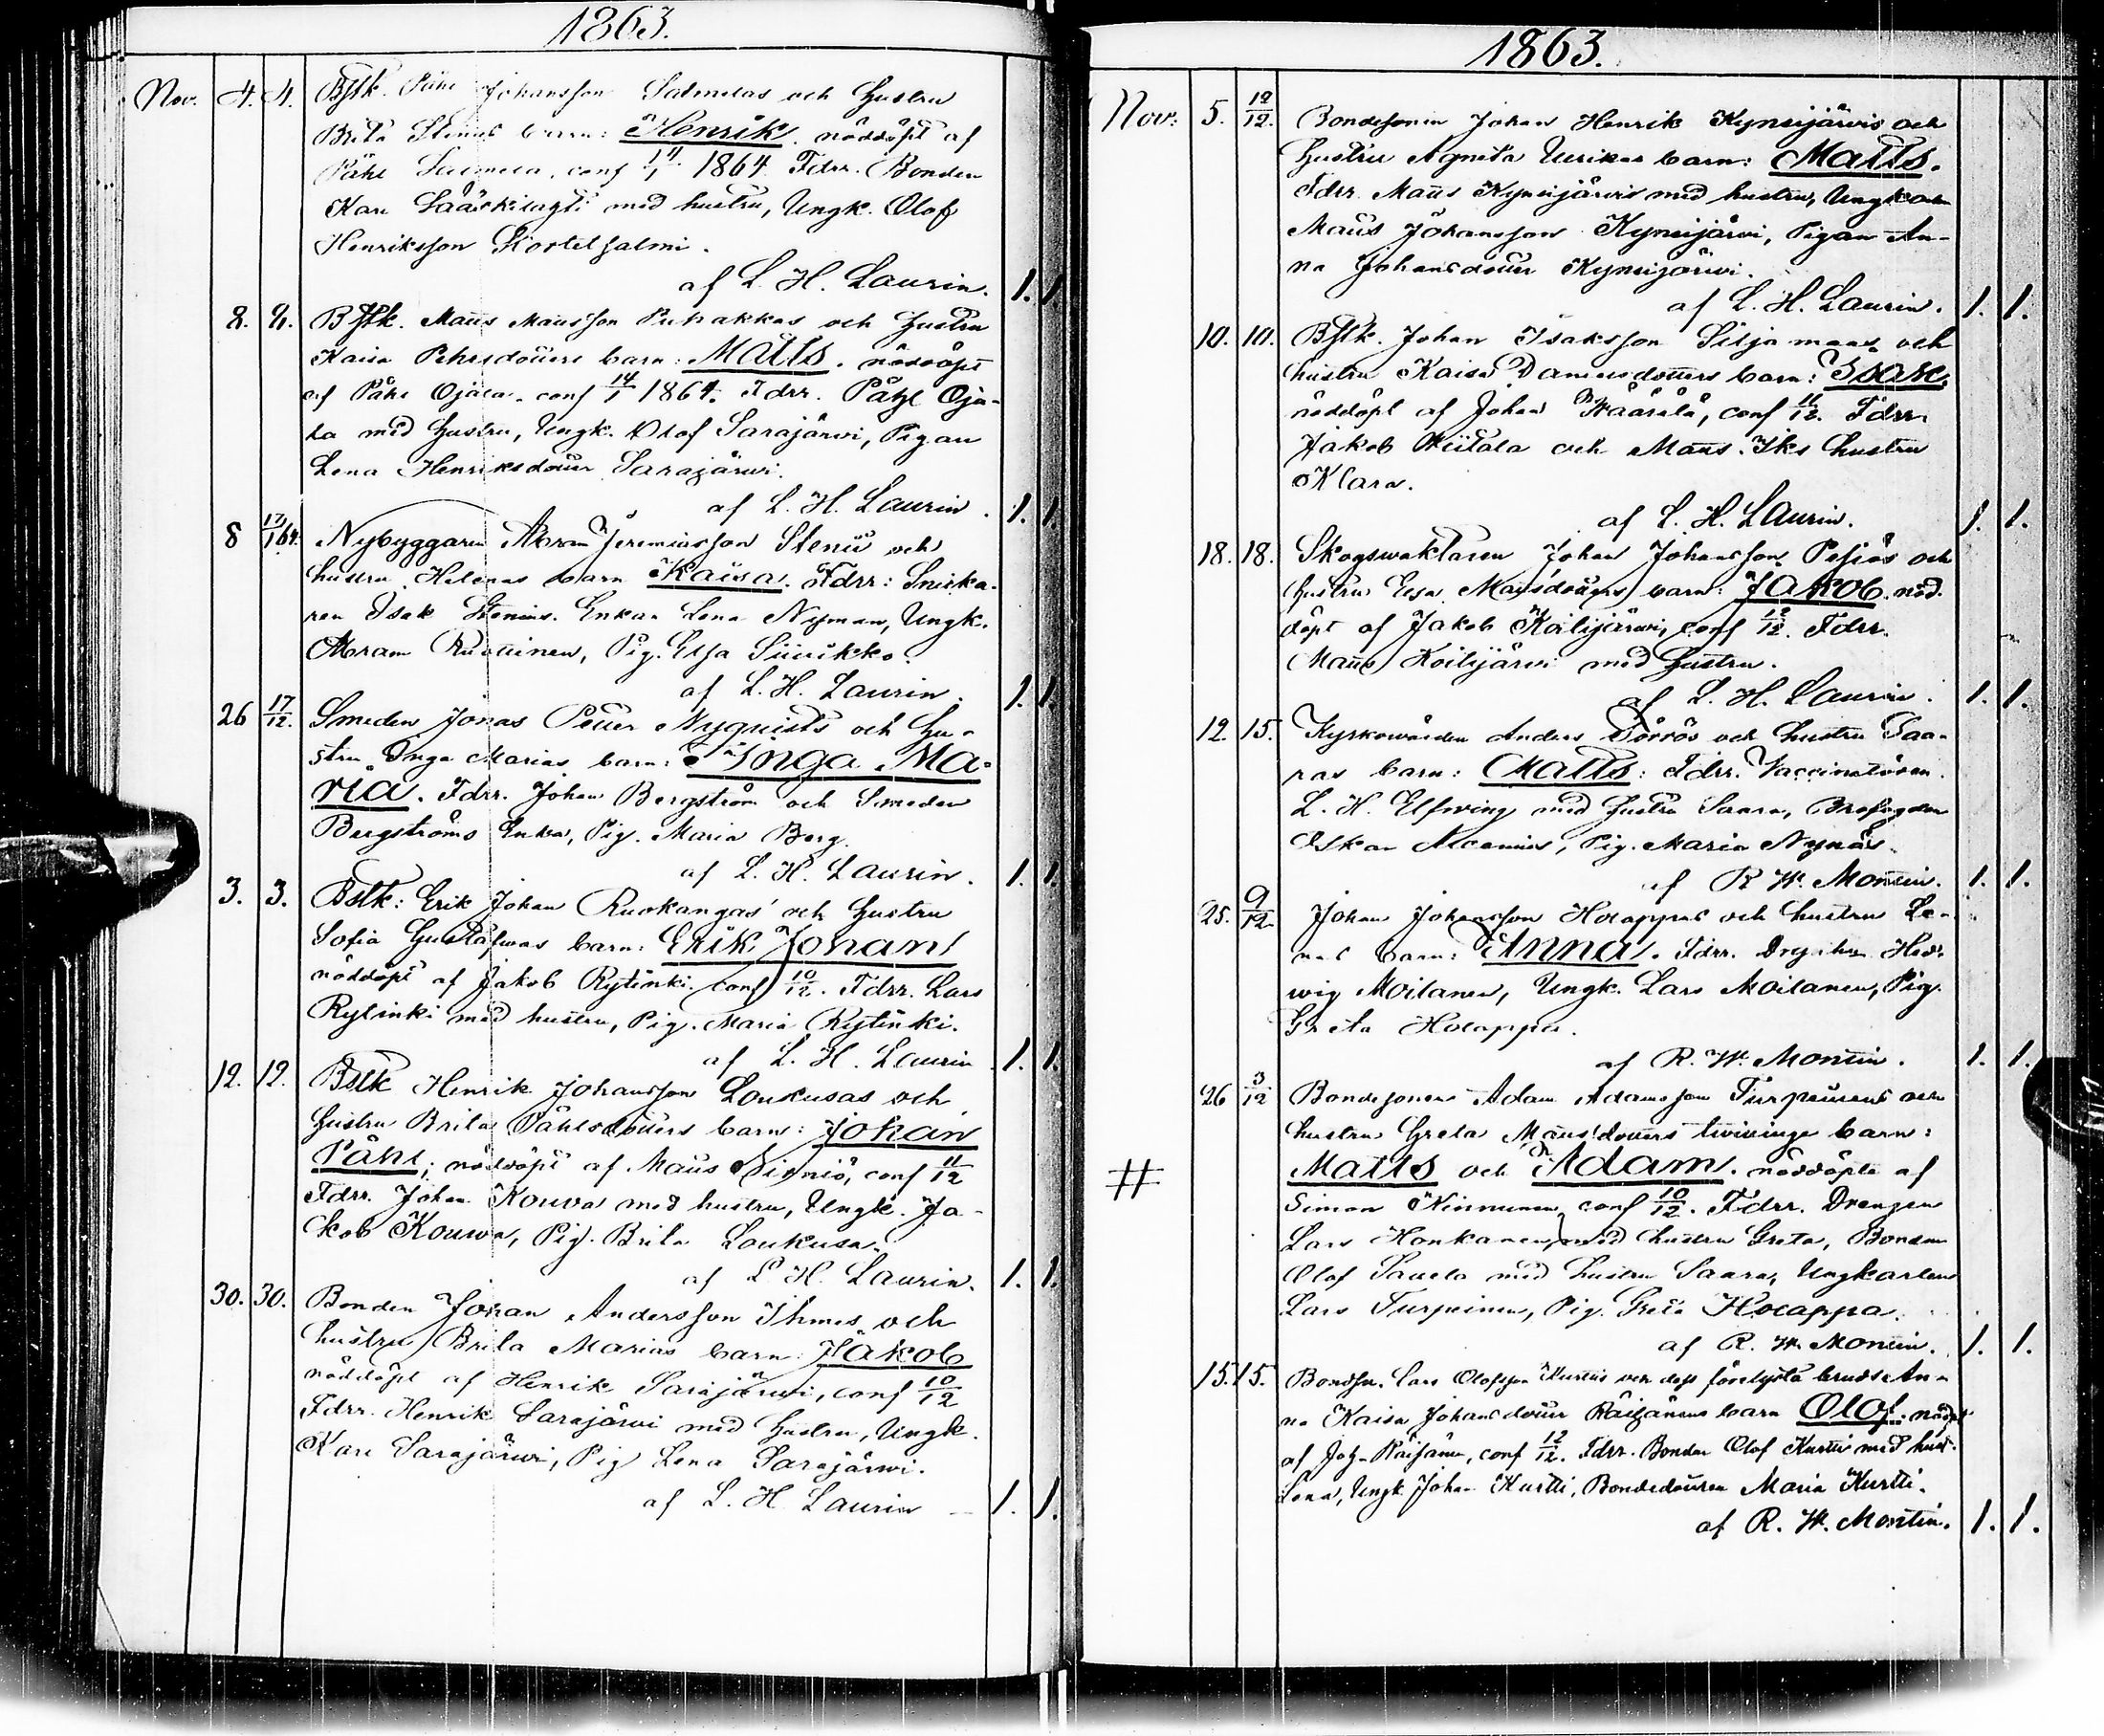 1863.
Nov. 4. 4. Bstk. Påhl Johansson Salmelas och hustru
Brita Stinas barn: Henrik. nöddöpt af
Påhl Salmela, conf 14/1 1864. Fdrr. Bonden
Karl Sääskilahti med hustru, Ungk. Olof
Henriksson Kortetsalmi.
af L. H. Laurin. 1. 1.
8. 8. Bstk. Matts Mattsson Puhakkas och hustru
Kaisa Pehrsdotters barn: Matts. nöddöpt
af Påhl Ojala. conf 14/1 1864. Fdrr. Påhl Oja-
la med hustru, Ungk. Olof Sarajärwi, Pigan
Lena Henriksdotter Sarajärwi.
af L. H. Laurin. 1. 1.
8 17/1 64. Nybyggaren Abram Jeremiasson Stenii och
hustru Helenas barn Kaisa. Fdrr: Snicka-
ren Isak Stenius. Enkan Lena Nyman, Ungk.
Abram Ruottinen, Pig. Elsa Siirikko.
af L. H. Laurin. 1. 1.
26 17/12. Smeden Jonas Petter Nyquists och hu-
stru Inga Marias barn: Inga Ma-
ria. Fdrr. Johan Bergström och Smeden
Bergströms Enka, Pig. Maria Berg.
af L. H. Laurin. 1. 1.
3. 3. Bstk: Erik Johan Ruokangas och hustru
Sofia Gustafwas barn: Erik Johan
nöddöpt af Jakob Rytinki. conf 10/12. Fdrr. Lars
Rytinki med hustru, Pig. Maria Rytinki.
af L. H. Laurin. 1. 1.
12. 12. Bstk Henrik Johansson Loukusas och
hustru Brita Påhlsdotters barn: Johan
Påhl; nöddöpt af Matts conf 11/12
Fdrr. Johan Kouva med hustru, Ungk. Ja-
kob Kouwa, Pig. Brita Loukusa.
af L. H. Laurin. 1. 1.
30. 30. Bonden Johan Andersson Ihmes och
hustru Brita Marias barn: Jakob
nöddöpt af Henrik Sarajärwi, conf 10/12
Fdrr. Henrik Sarajärwi med hustru, Ungk.
Karl Sarajärwi, Pig Lena Sarajärwi.
af L. H. Laurin 1. 1.
1863.
Nov. 5. 12/12. Bondesonen Johan Henrik Kynsijärwis och
hustru Agneta Ulrikas barn: Matts.
Fdrr. Matts Kynsijärwi med hustru, Ungkarl
Matts Johansson Kynsijärwi, Pigan An-
na Johansdotter Kynsijärwi.
af L. H. Laurin. 1. 1.
10. 10. Bstk. Johan Isaksson Siljamaas och
hustru Kaisa Danielsdotters barn: Isak.
nöddöpt af Johan Määrälä, conf 11/12. Fdrr.
Jakob Wiitala och Matts Iks hustru
Klara.
af L. H. Laurin. 1. 1.
18. 18. Skogswaktaren Johan Johansson Pesiös och
hustru Elsa Mattsdotters barn: Jakob. nöd-
döpt af Jakob Koilijärwi, conf 12/12. Fdrr.
Matts Koilijärwi med hustru.
af L. H. Laurin. 1. 1.
12. 15. Kyrkowärden Anders Törrös och hustru Saa-
ras barn: Matts: Fdrr. Vaccinatören
L. H. Elfving med hustru Saara, Brofogden
Oskar Alcenius, Pig. Maria Nynäs.
af R. W. Montin. 1. 1.
25. 9/12. Johan Johansson Holappas och hustru Le-
nas barn: Anna. Fdrr. Hed-
wig Moilanen, Ungk. Lars Moilanen, Pig.
Greta Holappa.
af R. W. Montin. 1. 1.
26 3/12 Bondesonen Adam Adamsson Turpeinens och
hustru Greta Mattsdotters twillinge barn:
# Matts och Adam. nöddöpta af
Simon Kinnunen, conf 10/12. Fdrr. Drengen
Lars Honkanen, med hustru Greta, Bonden
Olof Sauela med hustru Saara, Ungkarlen
Lars Turpeinen, Pig. Greta Holappa.
af R. W. Montin. 1. 1.
15. 15. Bondsn. Lars Olofsson Kurttis och dess förelysta bruds An-
na Kaisa Johansdotter Räisänens barn Olof. nödpt
af Joh. Räisänen, conf 12/12. Fdrr. Bonden Olof Kurtti med hust.
Lena, Ungk Johan Kurtti, Bondedottren Maria Kurtti.
af R. W. Montin. 1. 1.